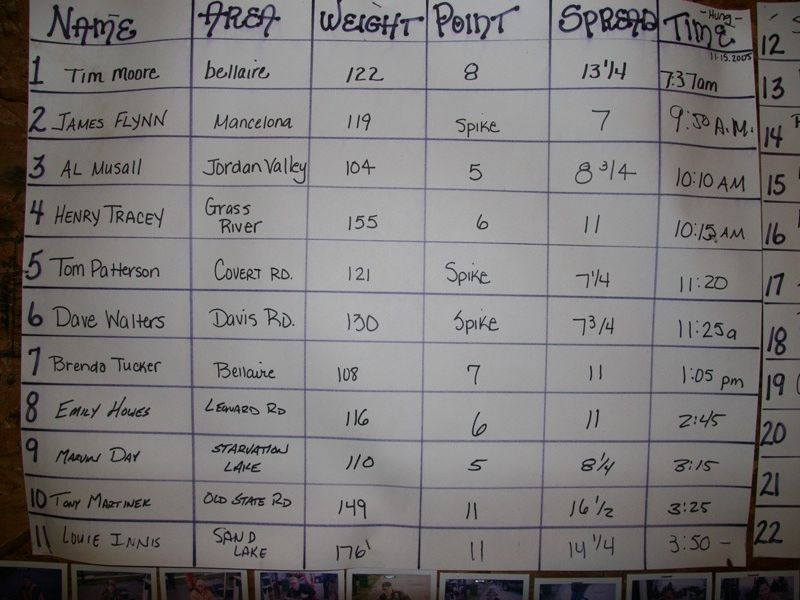 NAME AREA WEIGHT POINT SPREAD TIME -Hung- 11.15.2005
1 Tim Moore bellaire 122 8 13 1/4 7:37am
2 JAMES FLYNN Mancelona 119 Spike 7 9:50 A.M.
3 AL Musall Jordan Valley 104 5 8 3/4 10:10 AM
4 HENRY TRACEY Grass River 155 6 11 10:15 AM
5 Tom Patterson COVERT RD. 121 Spike 7 1/4 11:20
6 Dave Walters Davis RD. 130 Spike 7 3/4 11:25a
7 Brenda Tucker Bellaire 108 7 11 1:05 pm
8 EMILY HOWES LEONARD RD 116 6 11 2:45
9 MARVIN DAY STARVATION LAKE 110 5 8 1/4 3:15
10 TONY MARTINEK OLD STATE RD 149 11 16 1/2 3:25
11 LOUIE INNIS SAND LAKE 176 11 14 1/4 3:50 -
12
13
14
15
16
17
18
19
20
21
22